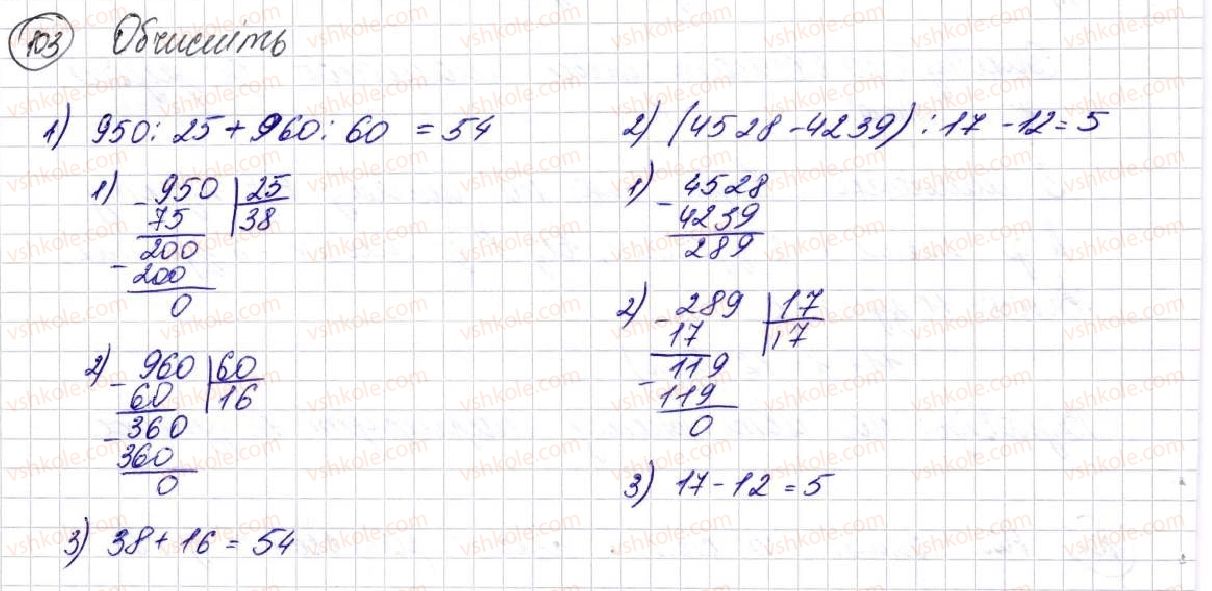 103 Обчисліть
1) 950 : 25 + 960 : 60 = 54
1) - 950 | 25
75 | 38
200
- 200
0
2) - 960 | 60
60 | 16
- 360
360
0
3) 38 + 16 = 54
2) (4528 - 4239) : 17 - 12 = 5
1) - 4528
4239
289
2) - 289 | 17
17 | 17
- 119
119
0
3) 17 - 12 = 5
vshkole.com